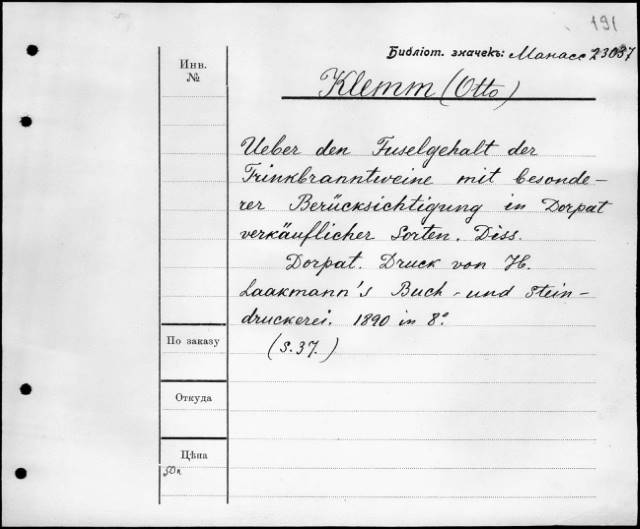 191
Библіот. значекъ: Манасс 23037
Инв.
№
Klemm (Otto)
Ueber den Fuselgehalt der
Trinkbranntweine mit besonde-
rer Berücksichtigung in Dorpat
verkäuflicher Sorten. Diss.
Dorpat. Druck von H.
Laakmann's Buch- und Stein-
druckerei. 1890 in 8°.
(S. 37.)
По заказу
Откуда
Цѣна
50к